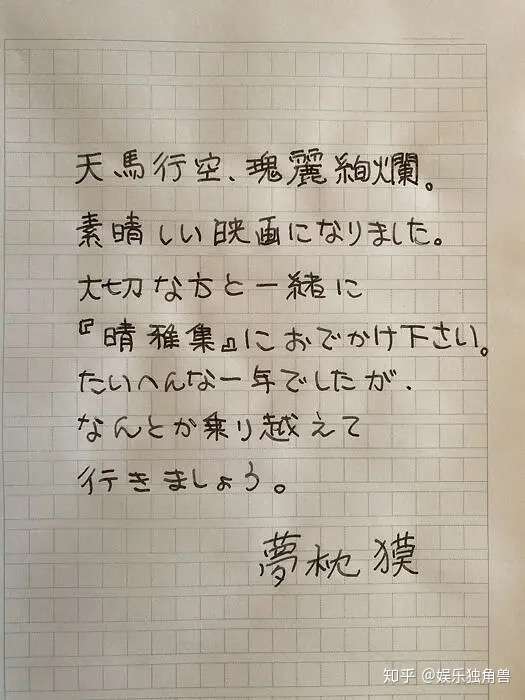 天馬行空、瑰麗絢爛。
素晴しい映画になりました。
大切な方と一緒に
『晴雅集』におでかけ下さい。
たいへんな一年でしたが、
なんとか乗り越えて
行きましょう。
夢枕獏
知乎 @娱乐独角兽